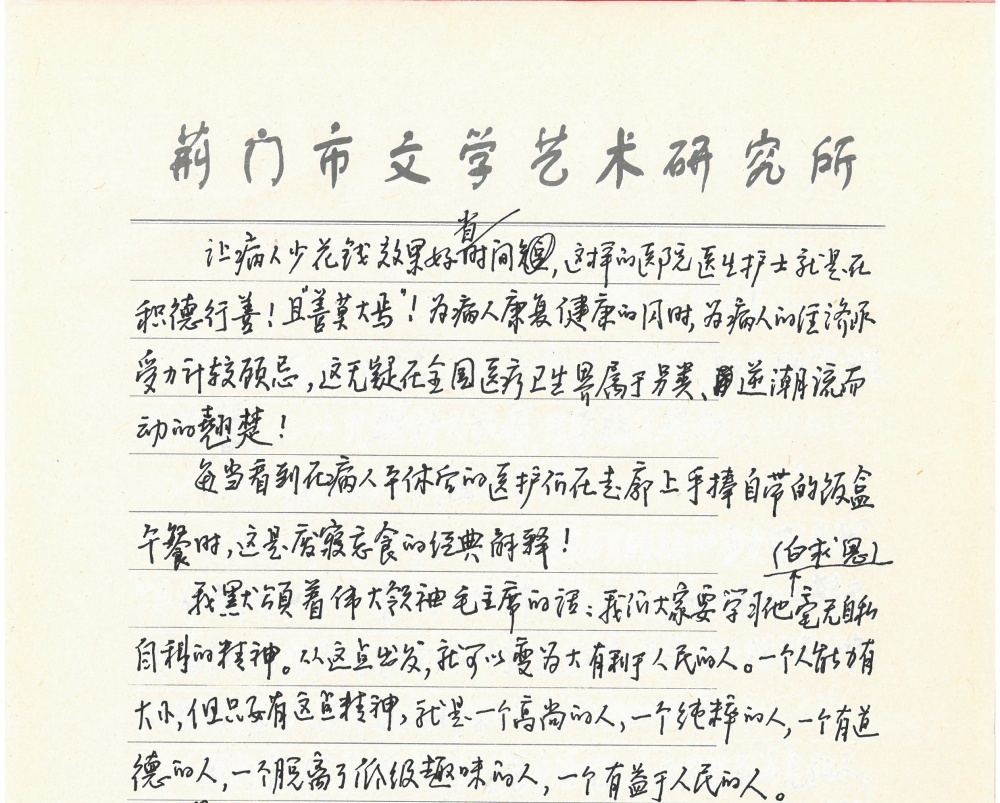 荆门市文学艺术研究所
省
让病人少花钱效果好时间短,这样的医院医生护士就是在
积德行善!且"善莫大焉"!为病人康复健康的同时,为病人的经济承
受力计较顾忌,这无疑在全国医疗卫生界属于另类、逆潮流而
动的翘楚!
每当看到在病人午休后的医护们在走廊上手捧自带的饭盒
午餐时,这是废寝忘食的经典解释!
(白求恩)
我默颂着伟大领袖毛主席的话:我们大家要学习他毫无自私
自利的精神。从这点出发,就可以变为大有利于人民的人。一个人能力有
大小,但只要有这点精神,就是一个高尚的人,一个纯粹的人,一个有道
德的人,一个脱离了低级趣味的人,一个有益于人民的人。